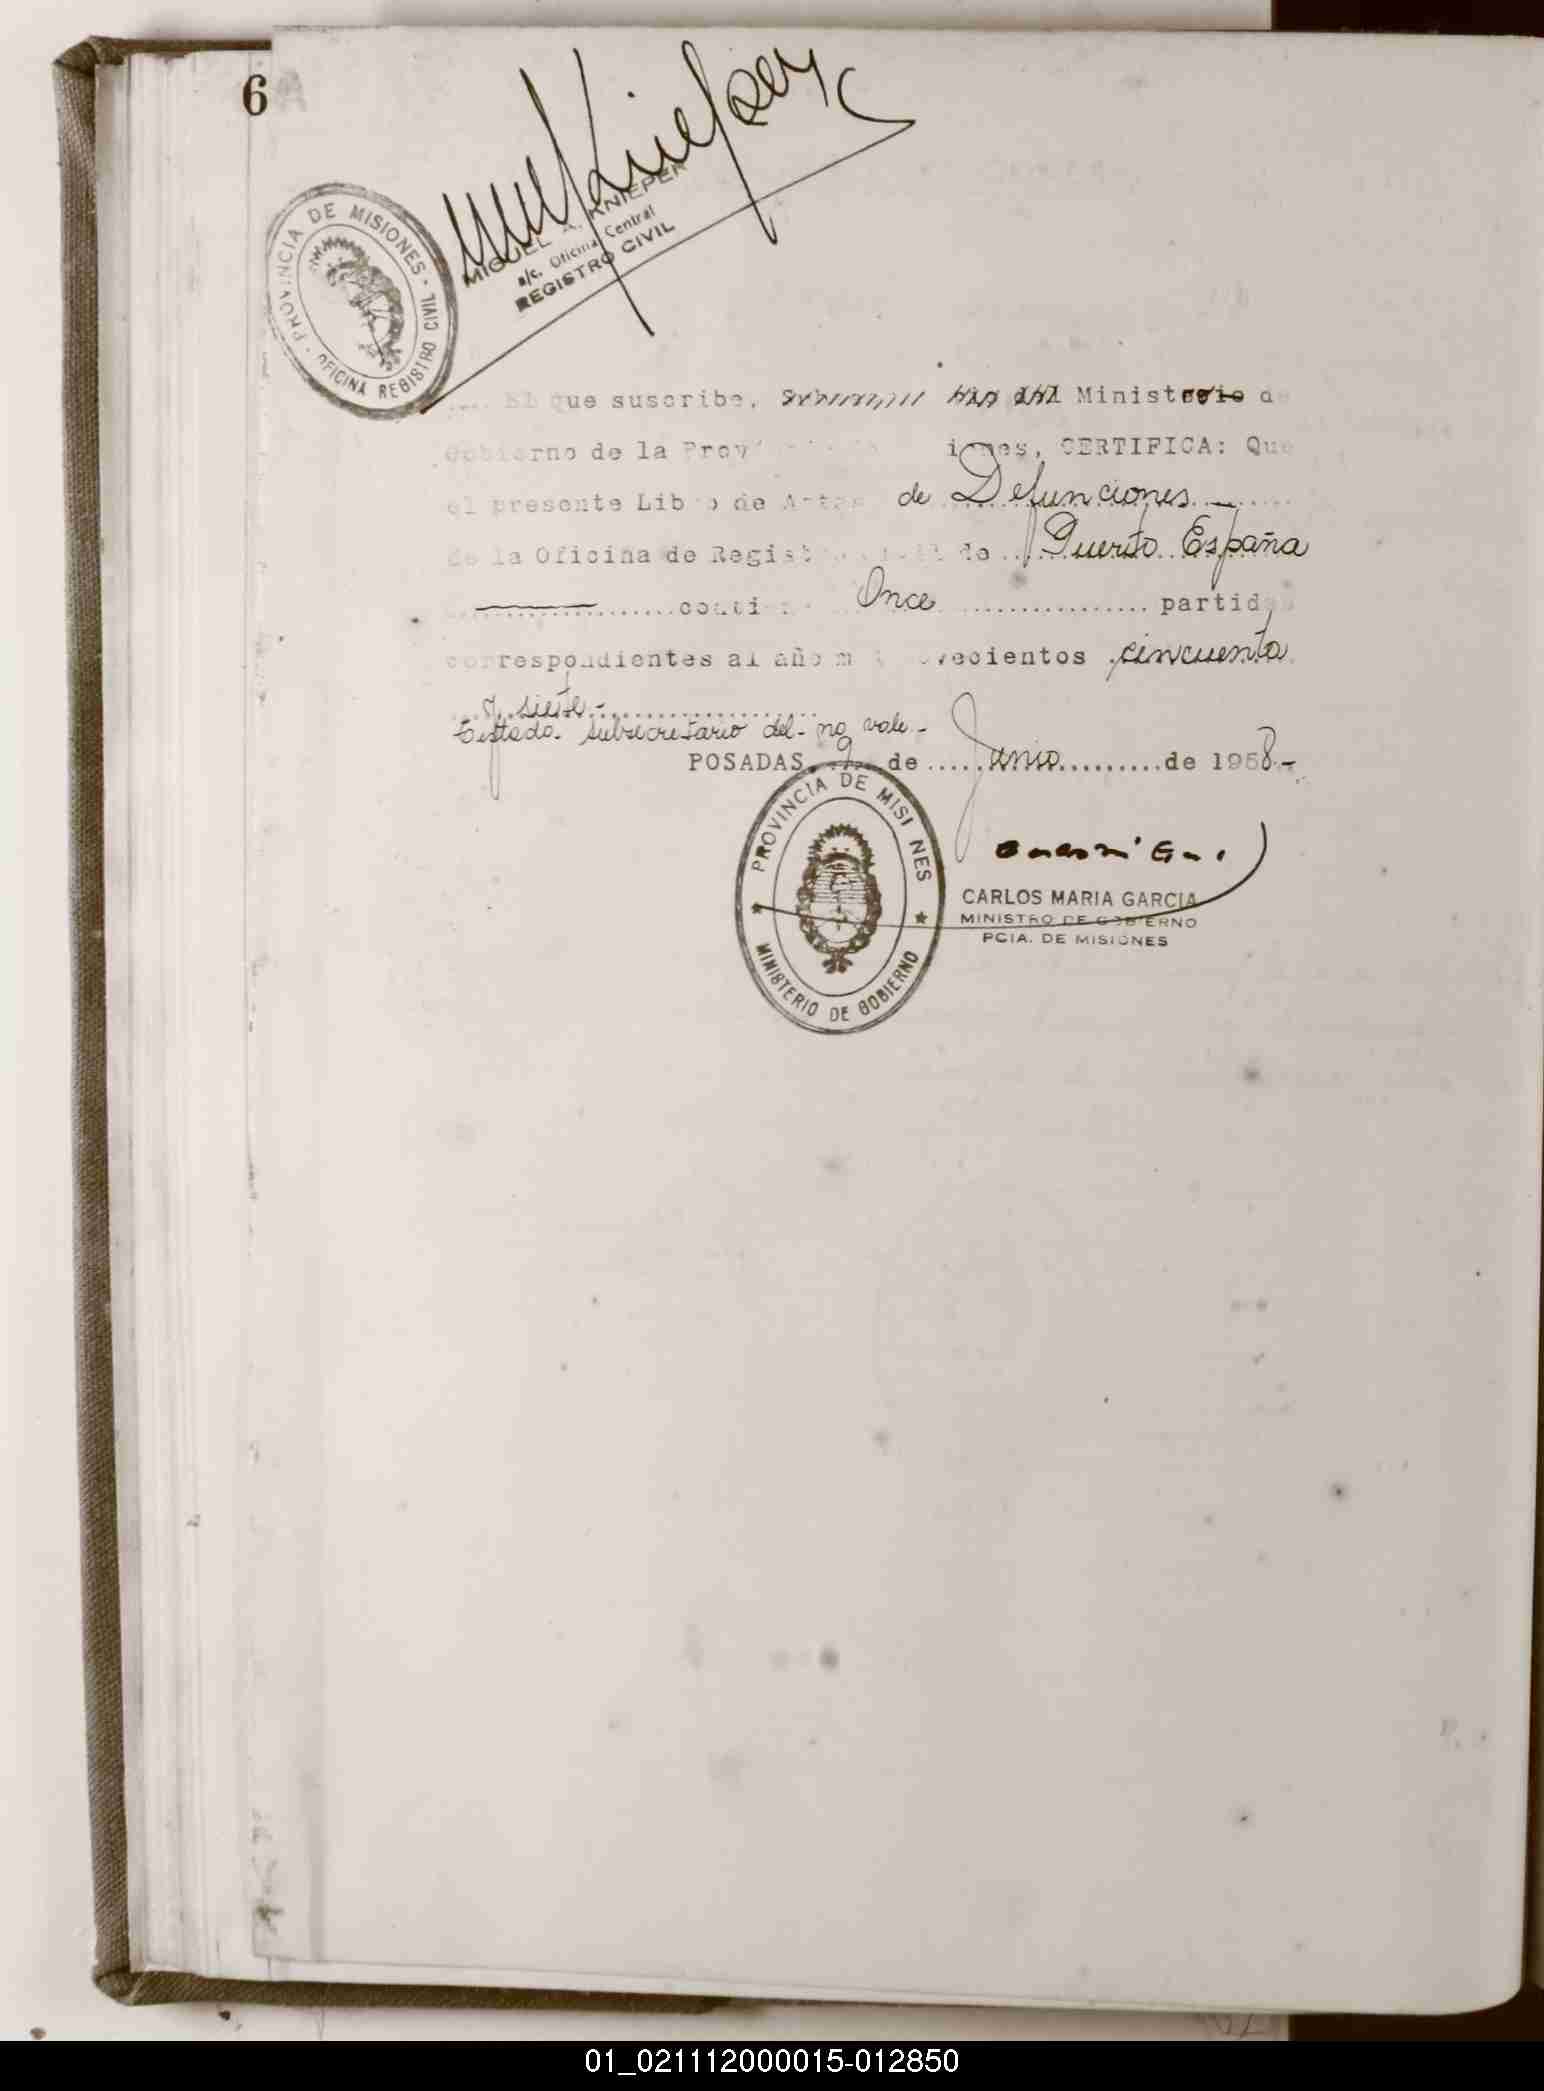 6
PROVINCIA DE MISIONES · OFICINA REGISTRO CIVIL ·
MIGUEL A. KNIEPER
a/c. Oficina Central
REGISTRO CIVIL
El que suscribe, Ministerio de
Gobierno de la Prov iones, CERTIFICA: Que
el presente Libro de Actas de Defunciones
de la Oficina de Registro Civil de Puerto España
conti Once partidas
correspondientes al año m vecientos cincuenta
y siete.-
Testado. subsecretario del- no vale.-
POSADAS, 9 de Junio de 1958.-
PROVINCIA DE MISI NES
MINISTERIO DE GOBIERNO
CARLOS MARIA GARCIA
MINISTRO DE GOBIERNO
PCIA. DE MISIONES
01_021112000015-012850